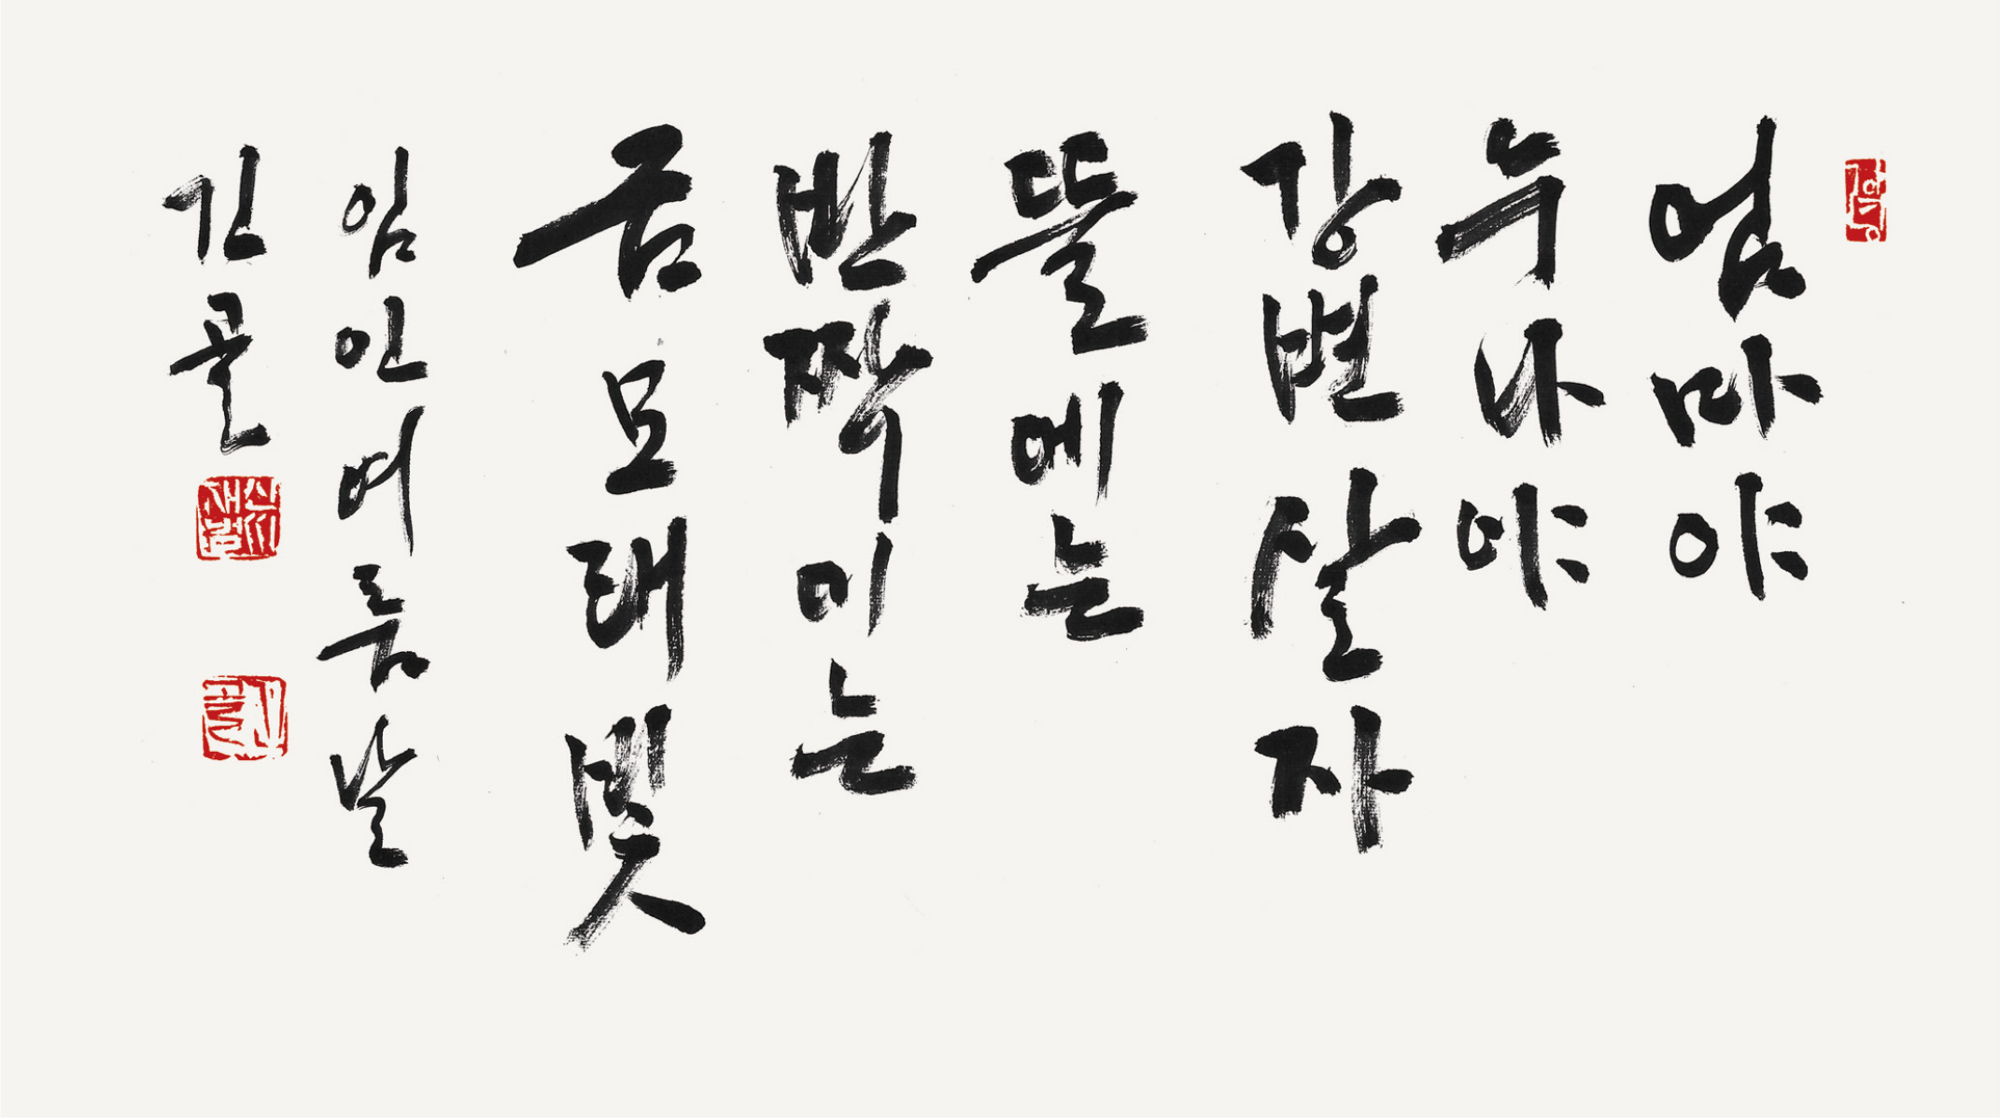 엄마야
누나야
강변살자
뜰에는
반짝이는
금모래빛
임인여름날
긴골